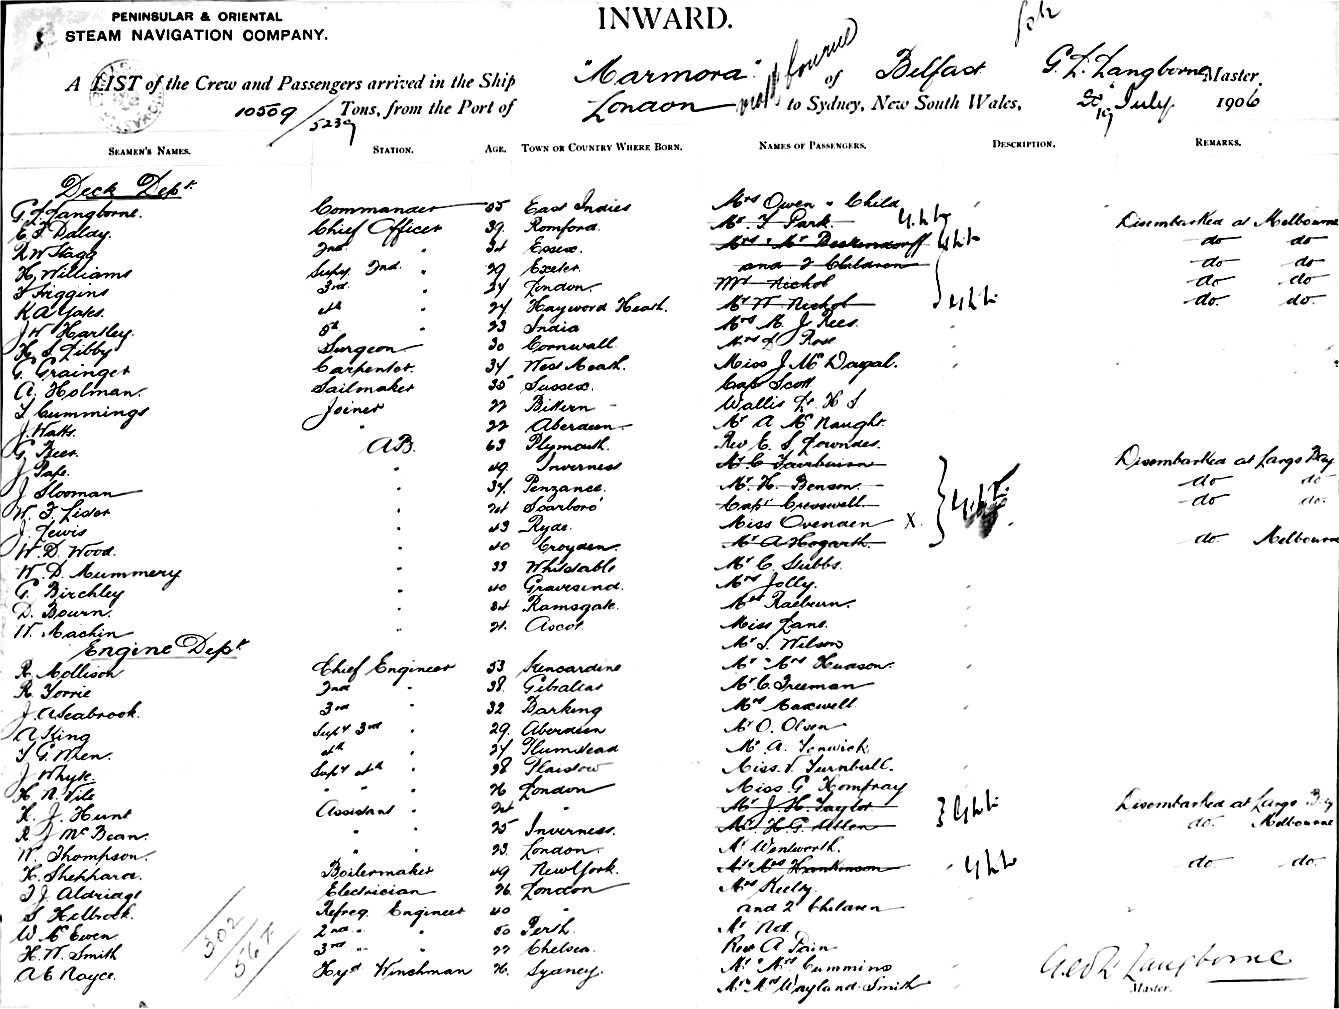 PENINSULAR & ORIENTAL
STEAM NAVIGATION COMPANY.
INWARD.
A LIST of the Crew and Passengers arrived in the Ship "Marmora" of Belfast G. L. Langborne Master,
10509/5239 Tons, from the Port of London to Sydney, New South Wales, July 1906
SEAMEN'S NAMES. STATION. AGE. TOWN OR COUNTRY WHERE BORN. NAMES OF PASSENGERS. DESCRIPTION. REMARKS.
Deck Dept.
G L Langborne. Commander 55 East Indies Mrs Owen & Child
E. F. Daldy. Chief Officer 39. Romford. Mr. F Park Disembarked at Melbourne
R W Stagg 2nd " 34 Essex. Mrs & Mr Beckendorff do do
H. Williams Supy 2nd. " 29 Exeter. and 2 Children do do
F Higgins 3rd. " 24 London. Mrs Nichol do do
K A Yates. 4th " 24 Hayword Heath. Mr W Nichol do do
J W Hartley. 5th " 23 India Mrs M. J. Rees.
H. S. Libby Surgeon 30 Cornwall Ross
G. Grainger Carpenter. 34 West Meath. Miss J. McDougal.
A. Holman. Sailmaker 35 Sussex. Capt Scott
F Cummings Joiner 22 Bittern Wallis Dr H S
J. Watts. " 22 Aberdeen Mr A McNaught.
G Rees. AB. 63 Plymouth. Rev E. S. Lowndes.
J. Pape. " 49. Inverness Mr C Fairbairn Disembarked at Largs Bay
J Slooman " 34. Penzance. Mr. H. Benson. do do
W. F. Lister " 24 Scarboro' Capt Cresswell. do do
J. Lewis " 43 Ryde. Miss Ovenden X.
W. D. Wood. " 40 Croydon. Mr A Hogarth. do. Melbourne
W. D. Mummery " 33 Whitstable Mr C. Stubbs.
G. Birchley " 40 Gravesend. Mrs Jolly.
D. Bourn. " 34 Ramsgate. Mrs Raeburn.
W. Machin " 21. Ascot Miss Lane.
Engine Dept. Mr S. Wilson
R. Mollison Chief Engineer 53 Kincardine Mr & Mrs Hudson.
R Torrie 2nd " 38. Gibraltar Mr. C. Freeman
J. A Seabrook. 3rd " 32 Barking Mrs Maxwell
A King Supy 3rd " 29. Aberdeen Mr O. Olsen
F. G. Wren. 4th " 27 Plumstead Mr A. Fenwick
J Whyte. Supy 4th " 28 Plaistow Miss. V. Turnbull.
H. N. Vile " " " 26 London Miss G Homfray
K. J. Hunt Assistant " 24 " Mr J. H. Taylor Disembarked at Largs Bay
R J McBean. " " 25 Inverness. Mr H. G. Allen do. Melbourne
W. Thompson. " " 23. London. Mr Wentworth.
H. Sheppard. Boilermaker 49 New York. Mr & Mrs Hankinson do do.
F. J. Aldridge Electrician 26. London Mrs Kelly.
S Holbrook. Refreg. Engineer 40 " and 2 Children
W. McEwen 2nd " " 50 Perth.
H. W. Smith 3rd " " 22 Chelsea. Rev A Pain
A E Nayce. Hyd Winchman 26. Sydney. Mr & Mrs Cummins
Mr & Mrs Wayland-Smith
302/567
Geo L Langborne
Master.